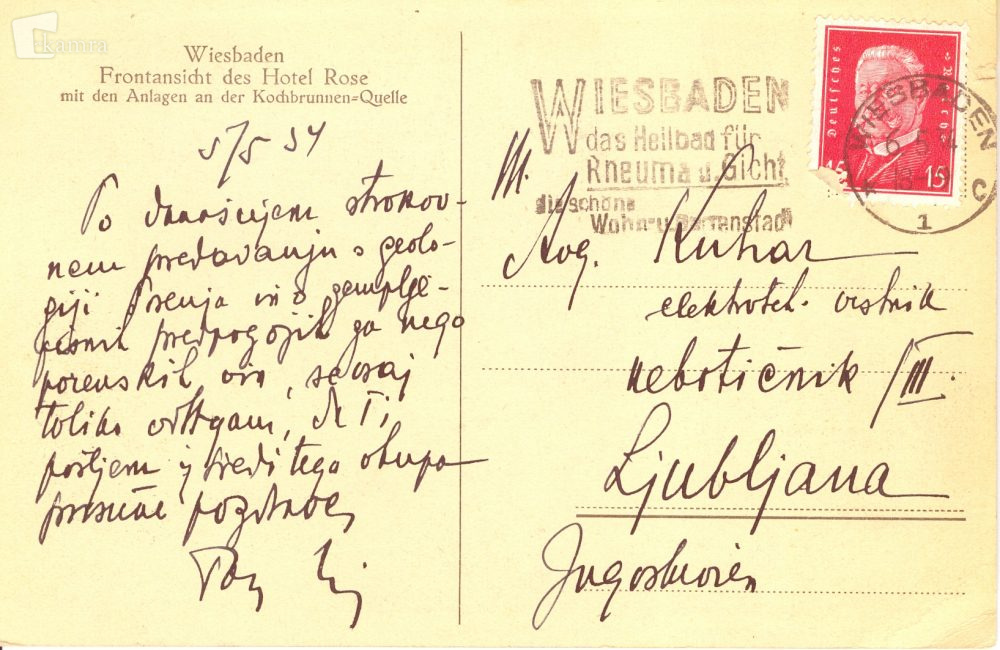 kamra
Wiesbaden
Frontansicht des Hotel Rose
mit den Anlagen an der Kochbrunnen=Quelle
5/5 34
Po današnjem strokov-
nem predavanju o geolo-
giji Porenja in o
predpogojih za nego
porenskih vin, se vsaj
toliko odtrgam, da Ti
pošljem iz sredi tega obupa
prisrčne pozdrave,
WIESBADEN
das Heilbad für
Rheuma u. Gicht
die schöne
Wohn- u. Gartenstadt
Deutsches Reich
15 15
WIESBADEN
1
C
M.
Avg. Kuhar
elektroteh. vestnik
Nebotičnik /III.
Ljubljana
Jugoslavien